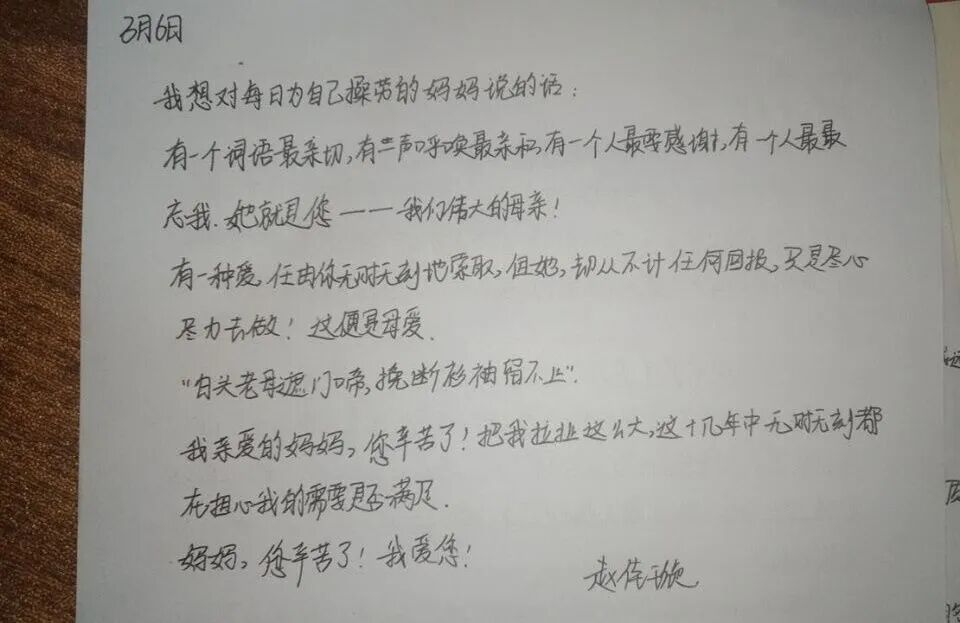 3月6日
我想对每日为自己操劳的妈妈说的话：
有一个词语最亲切，有一声呼唤最亲和，有一个人最要感谢，有一个人最最
忘我.她就是您——我们伟大的母亲！
有一种爱，任由你无时无刻地索取，但她，却从不计任何回报，只是尽心
尽力去做！这便是母爱.
“白头老母遮门啼，挽断衫袖留不止”.
我亲爱的妈妈，您辛苦了！把我拉扯这么大，这十几年中无时无刻都
在担心我的需要是否满足.
妈妈，您辛苦了！我爱您！
赵佳璇